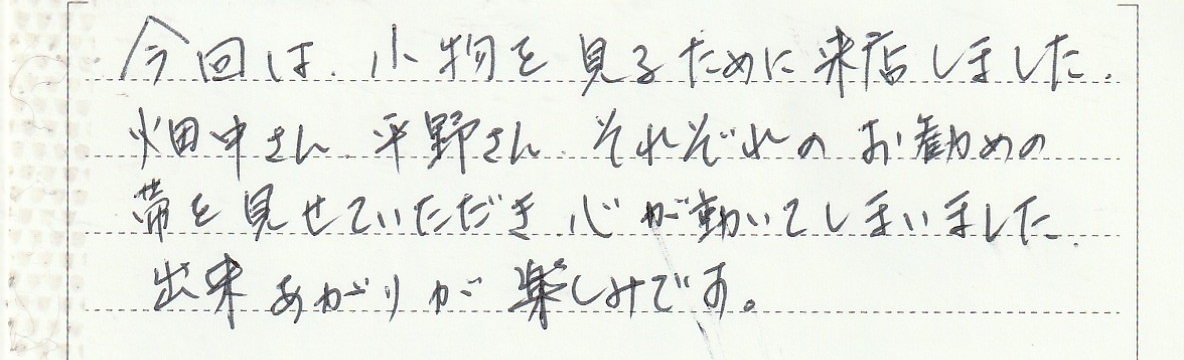 今回は、小物を見るために来店しました。
畑中さん、平野さん、それぞれのお勧めの
帯を見せていただき、心が動いてしまいました。
出来あがりが楽しみです。